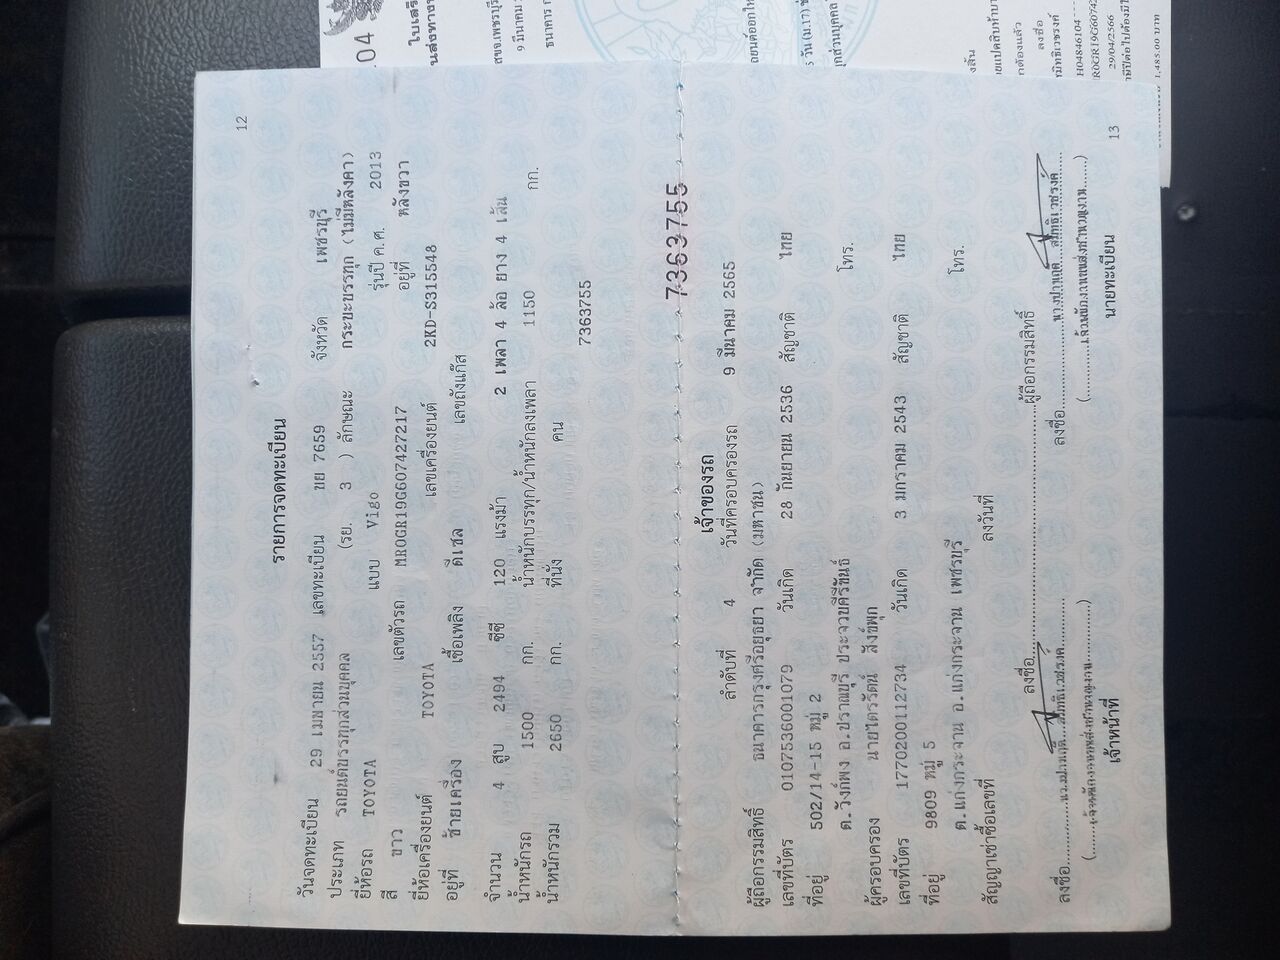 12
รายการจดทะเบียน
วันจดทะเบียน 29 เมษายน 2557 เลขทะเบียน ผย 7659 จังหวัด เพชรบุรี
ประเภท รถยนต์บรรทุกส่วนบุคคล (รย. 3 ) ลักษณะ กระบะบรรทุก (ไม่มีหลังคา)
ยี่ห้อรถ TOYOTA แบบ Vigo รุ่นปี ค.ศ. 2013
สี ขาว เลขตัวรถ MR0GR19G607427217 อยู่ที่ หลังขวา
ยี่ห้อเครื่องยนต์ TOYOTA เลขเครื่องยนต์ 2KD-S315548
อยู่ที่ ซ้ายเครื่อง เชื้อเพลิง ดีเซล เลขถังแก๊ส
จำนวน 4 สูบ 2494 ซีซี 120 แรงม้า 2 เพลา 4 ล้อ ยาง 4 เส้น
น้ำหนักรถ 1500 กก. น้ำหนักบรรทุก/น้ำหนักลงเพลา 1150 กก.
น้ำหนักรวม 2650 กก. ที่นั่ง คน
7363755
7363755
เจ้าของรถ
ลำดับที่ 4 วันที่ครอบครองรถ 9 มีนาคม 2565
ผู้ถือกรรมสิทธิ์ ธนาคารกรุงศรีอยุธยา จำกัด (มหาชน)
เลขที่บัตร 0107536001079 วันเกิด 28 กันยายน 2536 สัญชาติ ไทย
ที่อยู่ 502/14-15 หมู่ 2
ต.วังก์พง อ.ปราณบุรี ประจวบคีรีขันธ์ โทร.
ผู้ครอบครอง นายไตรรัตน์ สังข์พุก
เลขที่บัตร 1770200112734 วันเกิด 3 มกราคม 2543 สัญชาติ ไทย
ที่อยู่ 9809 หมู่ 5
ต.แก่งกระจาน อ.แก่งกระจาน เพชรบุรี โทร.
สัญญาเช่าซื้อเลขที่ ลงวันที่
ลงชื่อ ผู้ถือกรรมสิทธิ์
ลงชื่อ ลงชื่อ
เจ้าหน้าที่ นายทะเบียน
13
04
ใบเสร็จ
9 มีนาคม
ธนาคาร
ลงชื่อ
H04846104
29/04/2566
1,485.00 บาท